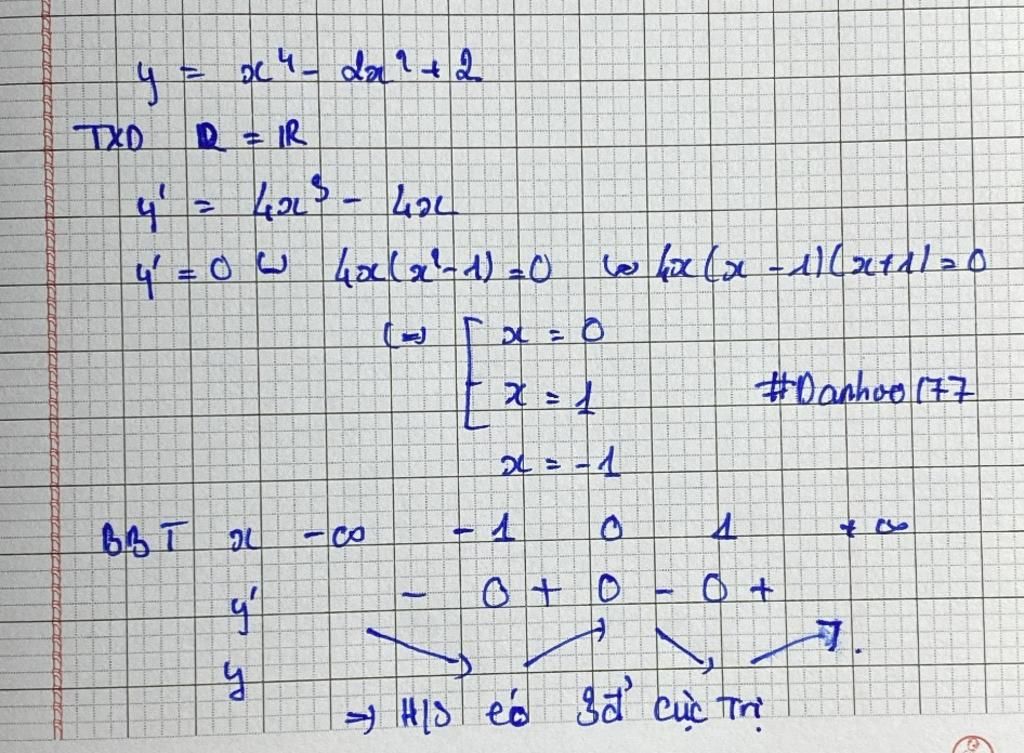 y = x⁴ - 2x² + 2
TXD D = ℝ
y' = 4x³ - 4x
y' = 0 ⇔ 4x(x²-1) = 0 ⇔ 4x(x-1)(x+1) = 0
⇔ [ x = 0
x = 1 #Danhoo177
x = -1
BBT x -∞ -1 0 1 +∞
y' - 0 + 0 - 0 +
y ↘ ↗ ↘ ↗.
⇒ H/S có 3đ' cực Trị